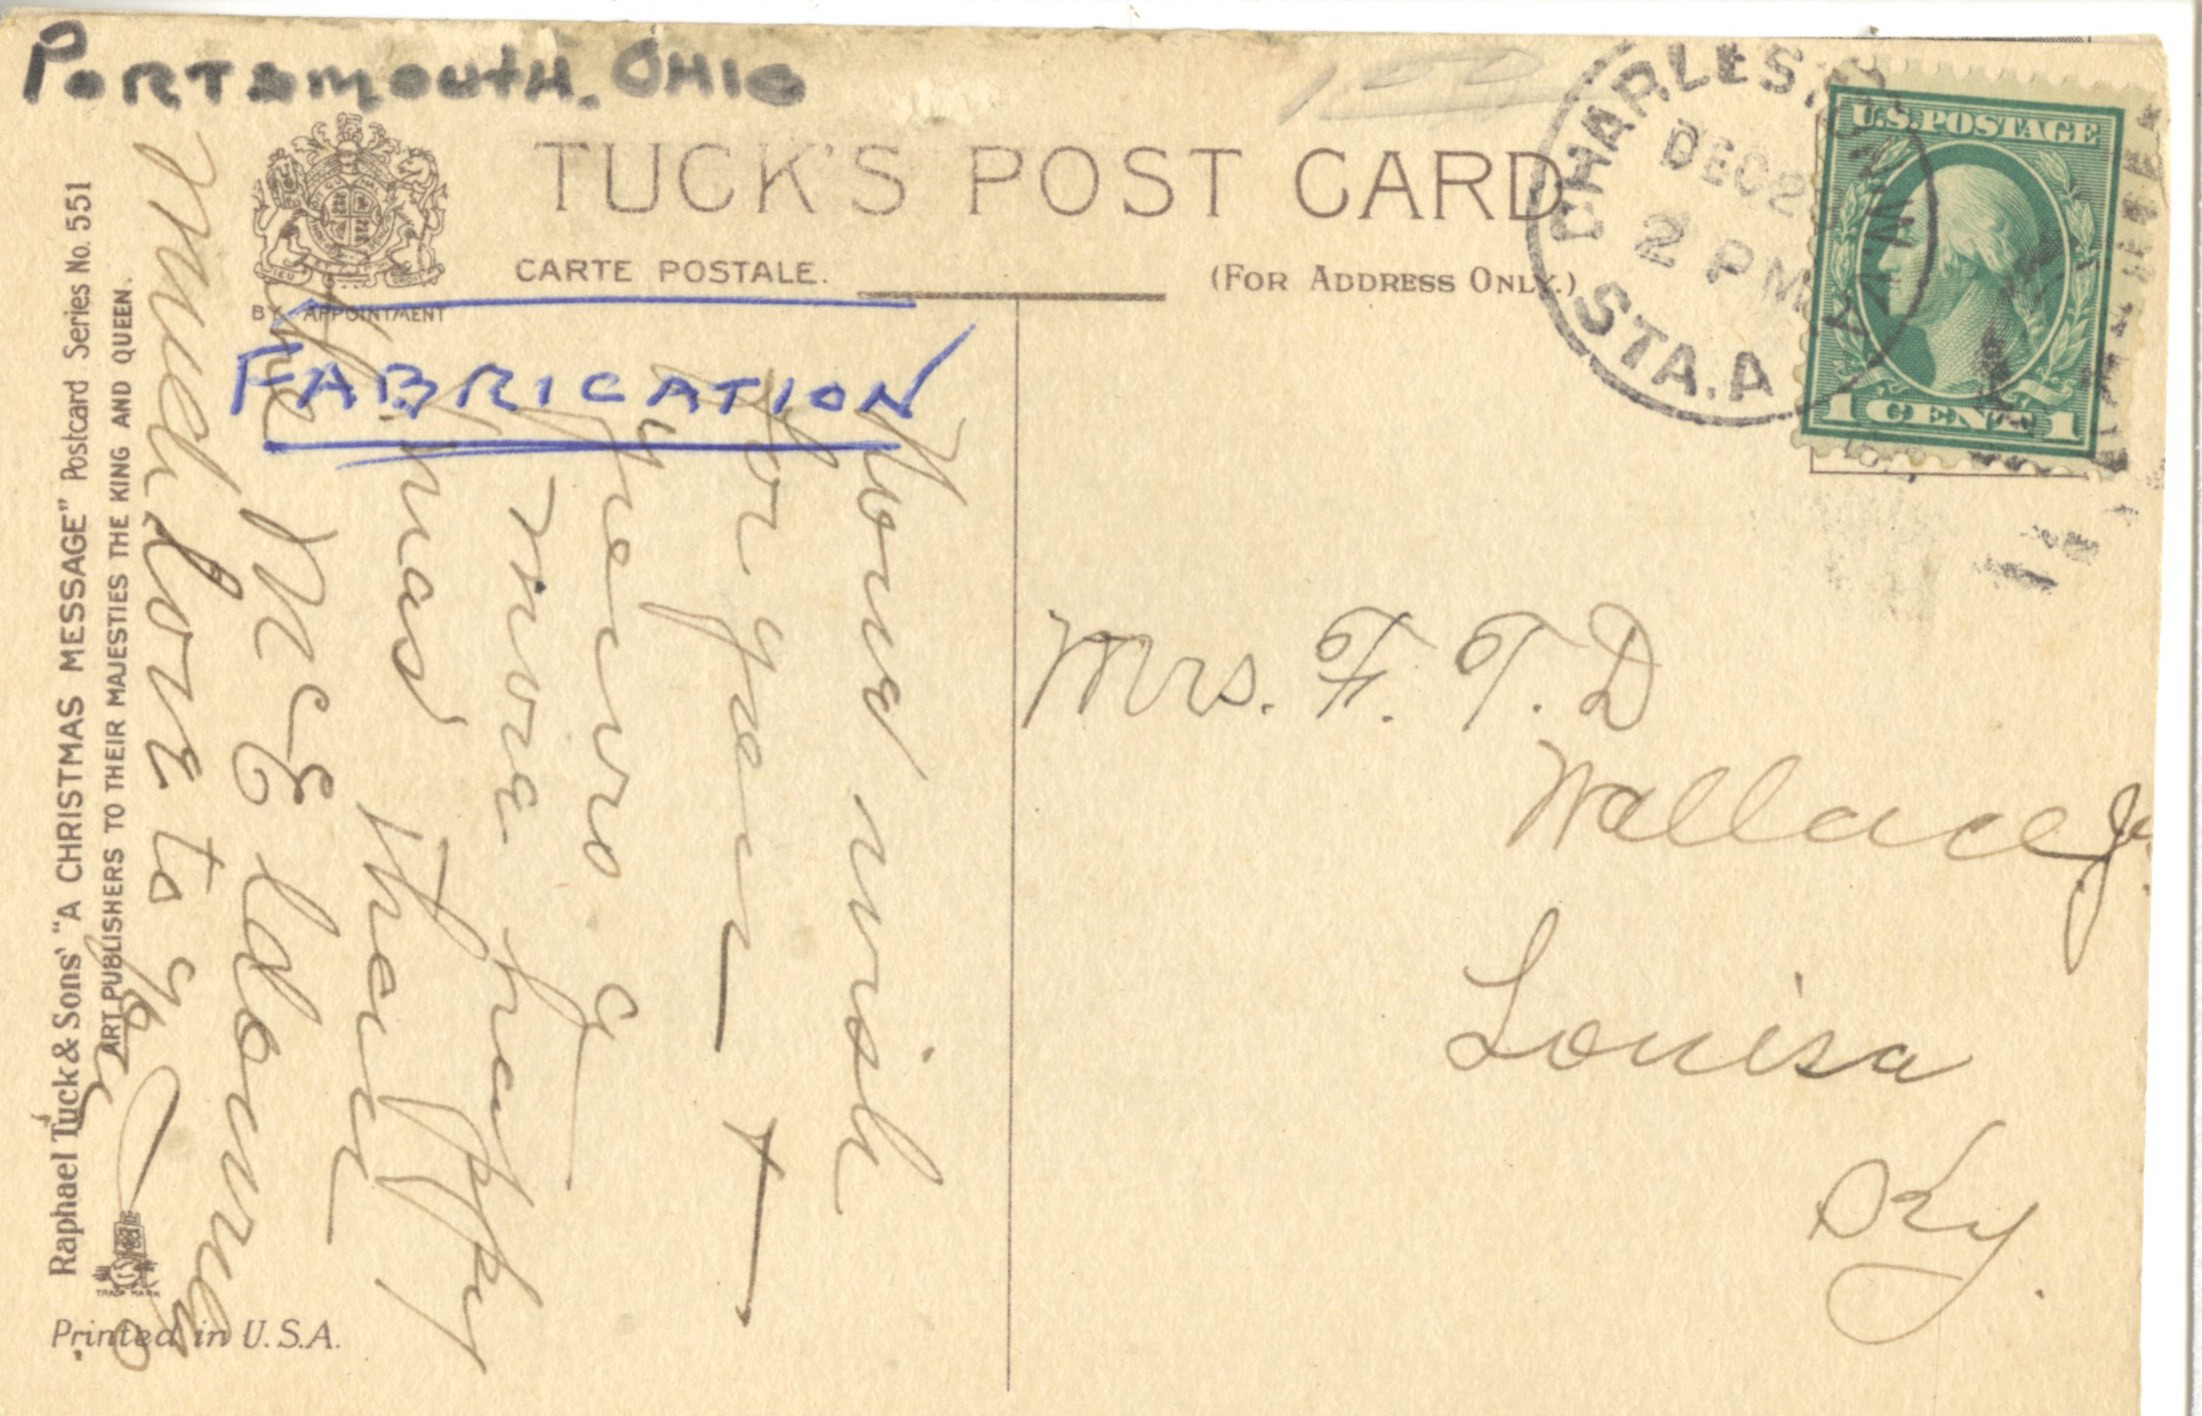 PORTSMOUTH. OHIO
TUCK'S POST CARD
CARTE POSTALE.
(FOR ADDRESS ONLY.)
BY APPOINTMENT
FABRICATION
CHARLESTON
DEC 2
2 PM
W. VA.
STA. A
U.S. POSTAGE
1 CENT 1
Would wish
for you
a
more happy
Xmas than
the McEldowneys
much love to you
Mrs. F. T. D
Wallace Jr.
Louisa
Ky.
Raphael Tuck & Sons' "A CHRISTMAS MESSAGE" Postcard Series No. 551
ART PUBLISHERS TO THEIR MAJESTIES THE KING AND QUEEN.
TRADE MARK
Printed in U.S.A.